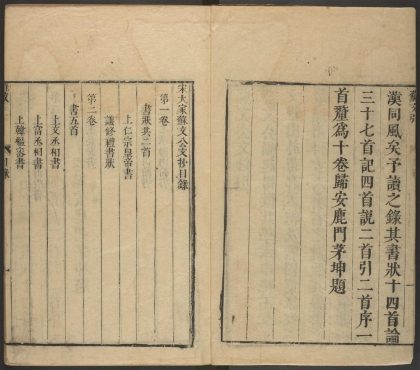 漢同風矣予讀之錄其書狀十四首論
三十七首記四首說二首引二首序一
首釐為十卷歸安鹿門茅坤題
宋大家蘇文公文抄目錄
第一卷
書狀共二首
上仁宗皇帝書
議修禮書狀
第二卷
書五首
上文丞相書
上富丞相書
上韓樞密書